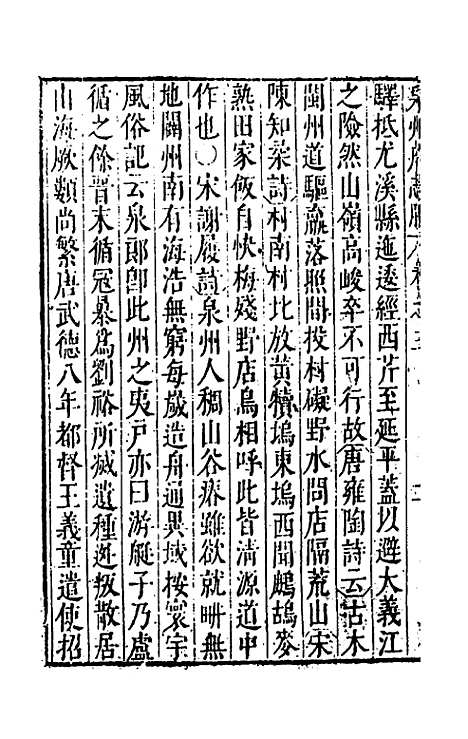 泉州府志
驛抵尤溪縣迤逶經西芹至延平蓋以避大義江
之險然山嶺高峻卒不可行故唐雍陶詩云古木
閩州道驅羸落照間投村礙野水問店隔荒山宋
陳知柔詩村南村北放黃犢塢東塢西聞鷓鴣麥
熟田家飯自快梅殘野店鳥相呼此皆清源道中
作也○宋謝履詩泉州人稠山谷瘠雖欲就畊無
地闢州南有海浩無窮每歲造舟通異域按寰宇
風俗記云泉郎卽此州之夷戶亦曰游艇子乃盧
循之餘晋末循冦暴爲劉裕所滅遺種逃叛散居
山海厥類尚繁唐武德八年都督王義童遣使招